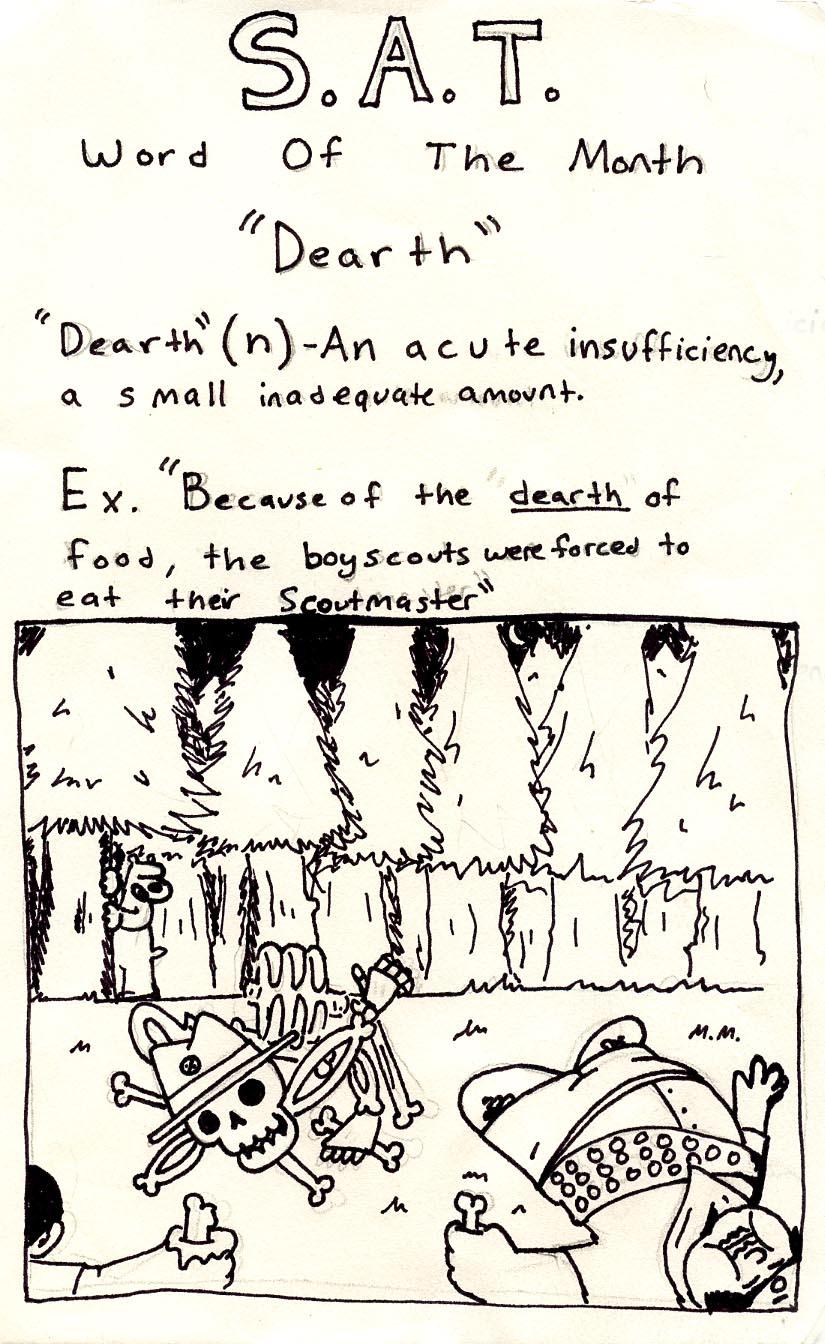 S.A.T.
Word Of The Month
"Dearth"
"Dearth" (n) - An acute insufficiency,
a small inadequate amount.
Ex. "Because of the dearth of
food, the boyscouts were forced to
eat their Scoutmaster"
M.M.